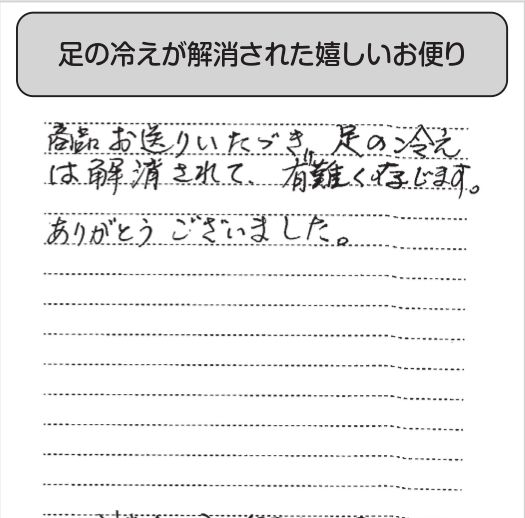 足の冷えが解消された嬉しいお便り
商品お送りいたづき、足の冷え
は解消されて、有難く存じます。
ありがとうございました。